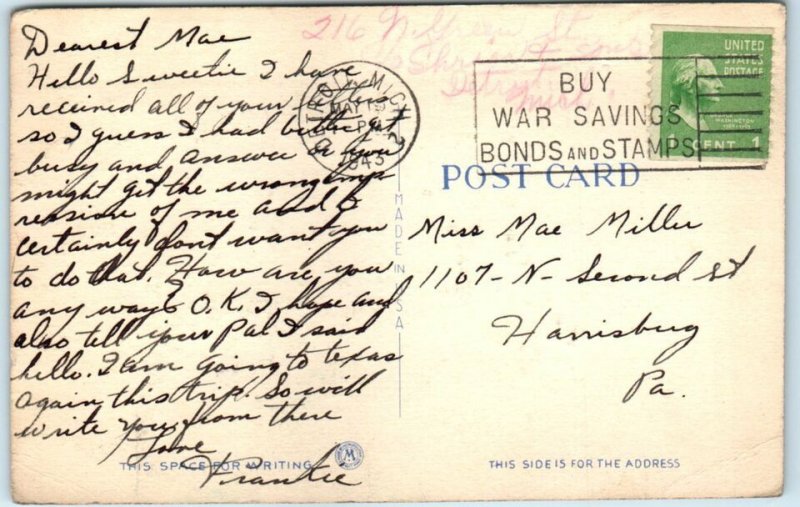 Dearest Mae
Hello Sweetie I have
received all of your letters
so I guess I had better get
busy and answer or you
might get the wrong imp
ression of me and I
certainly dont want you
to do that. How are you
any way? O.K. I hope and
also tell your Pal I said
hello. I am going to texas
again this trip. So will
write you from there
Love
Frankie
THIS SPACE FOR WRITING
M
216 N. Green St
Detroit
Mich
DETROIT, MICH. 2
MAY 13
PM
1943
BUY
WAR SAVINGS
BONDS AND STAMPS
UNITED
STATES
POSTAGE
WASHINGTON
1 CENT 1
POST CARD
MADE IN USA
Miss Mae Miller
1107-N-Second St
Harrisburg
Pa.
THIS SIDE IS FOR THE ADDRESS